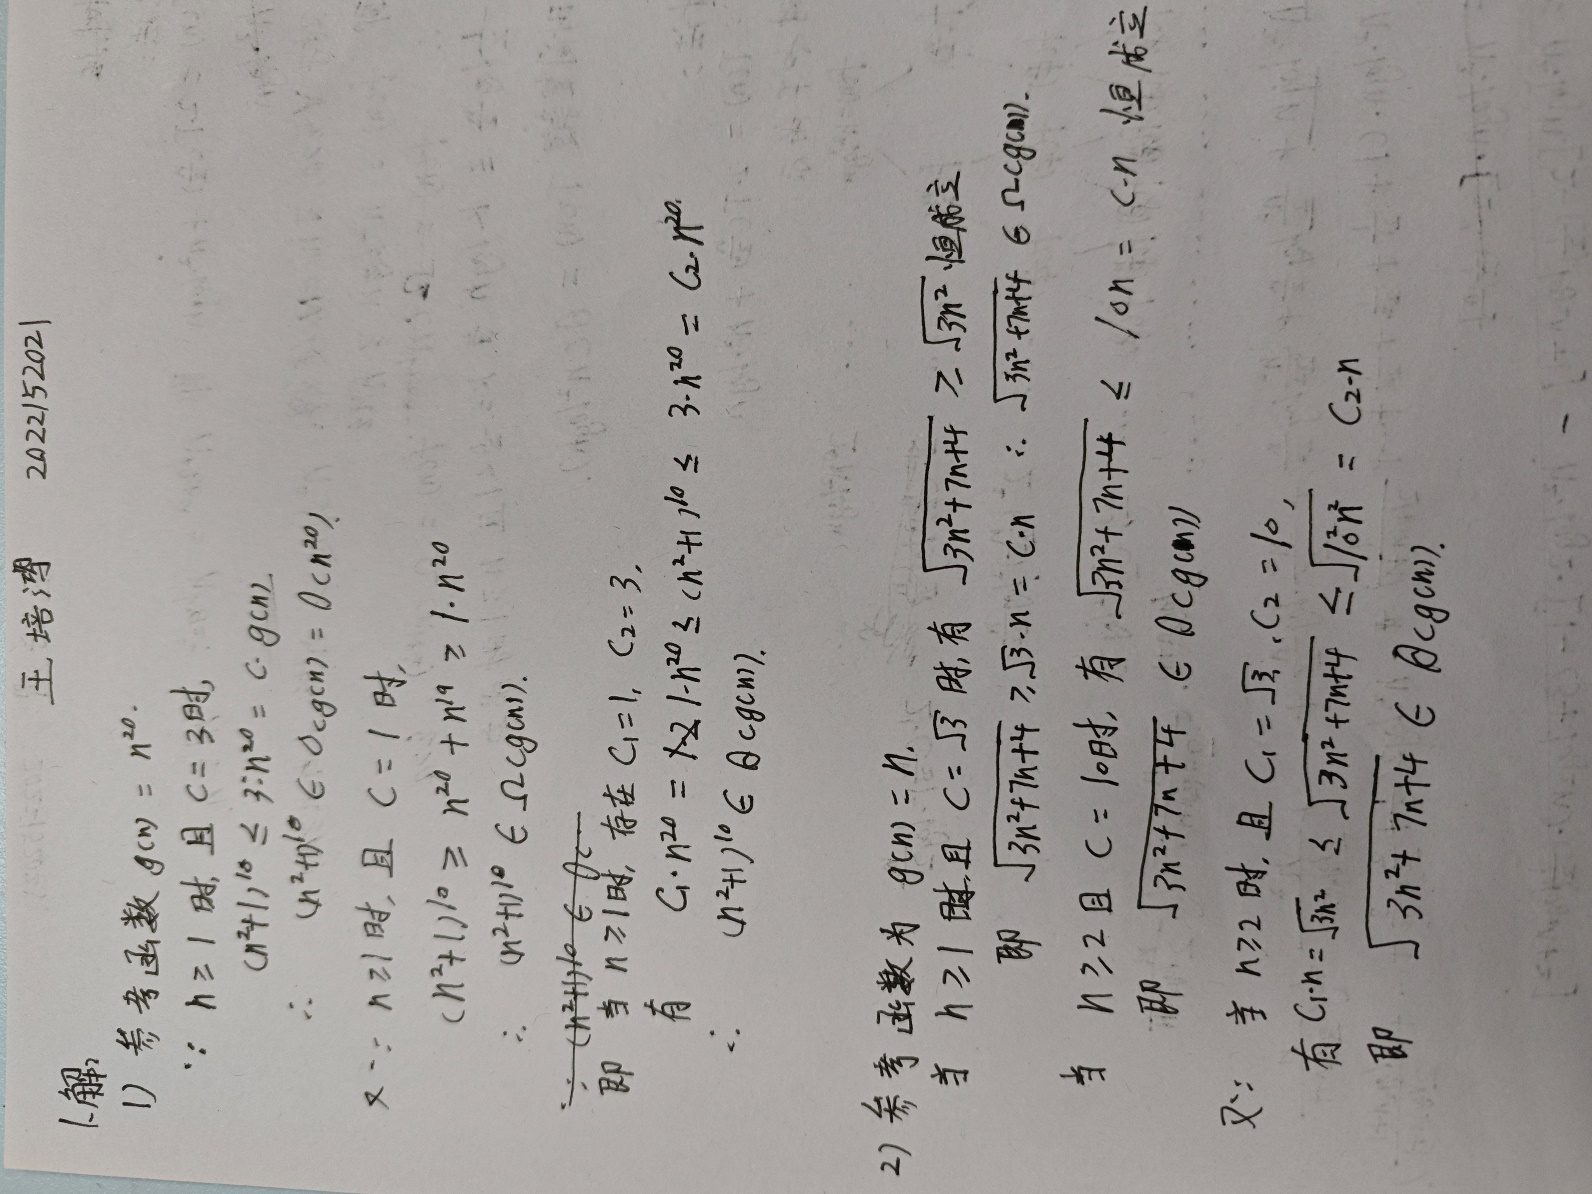 王培涛 2022152021
1.解:
1) 参考函数 g(n) = n²⁰.
∵ n ≥ 1 时, 且 C = 3时,
(n²+1)¹⁰ ≤ 3·n²⁰ = C·g(n)
∴ (n²+1)¹⁰ ∈ O(g(n)) = O(n²⁰).
又∵ n≥1时, 且 C = 1 时,
(n²+1)¹⁰ ≥ n²⁰ + n¹⁹ ≥ 1·n²⁰
∴ (n²+1)¹⁰ ∈ Ω(g(n)).
即 当 n≥1时, 存在 C₁=1, C₂=3,
有 C₁·n²⁰ = 1·n²⁰ ≤ (n²+1)¹⁰ ≤ 3·n²⁰ = C₂·n²⁰.
∴ (n²+1)¹⁰ ∈ θ(g(n)).
2) 参考函数为 g(n) = n.
当 n ≥ 1 时,且 C=√3 时,有 √(3n²+7n+4) ≥ √(3n²) 恒成立
即 √(3n²+7n+4) ≥ √3·n = C·n ∴ √(3n²+7n+4) ∈ Ω(g(n)).
当 n ≥ 2 且 C = 10时, 有 √(3n²+7n+4) ≤ 10n = C·n 恒成立
即 √(3n²+7n+4) ∈ O(g(n))
又∵ 当 n≥2 时, 且 C₁=√3, C₂=10,
有 C₁·n=√(3n²) ≤ √(3n²+7n+4) ≤ √(10²n²) = C₂·n
即 √(3n²+7n+4) ∈ θ(g(n)).